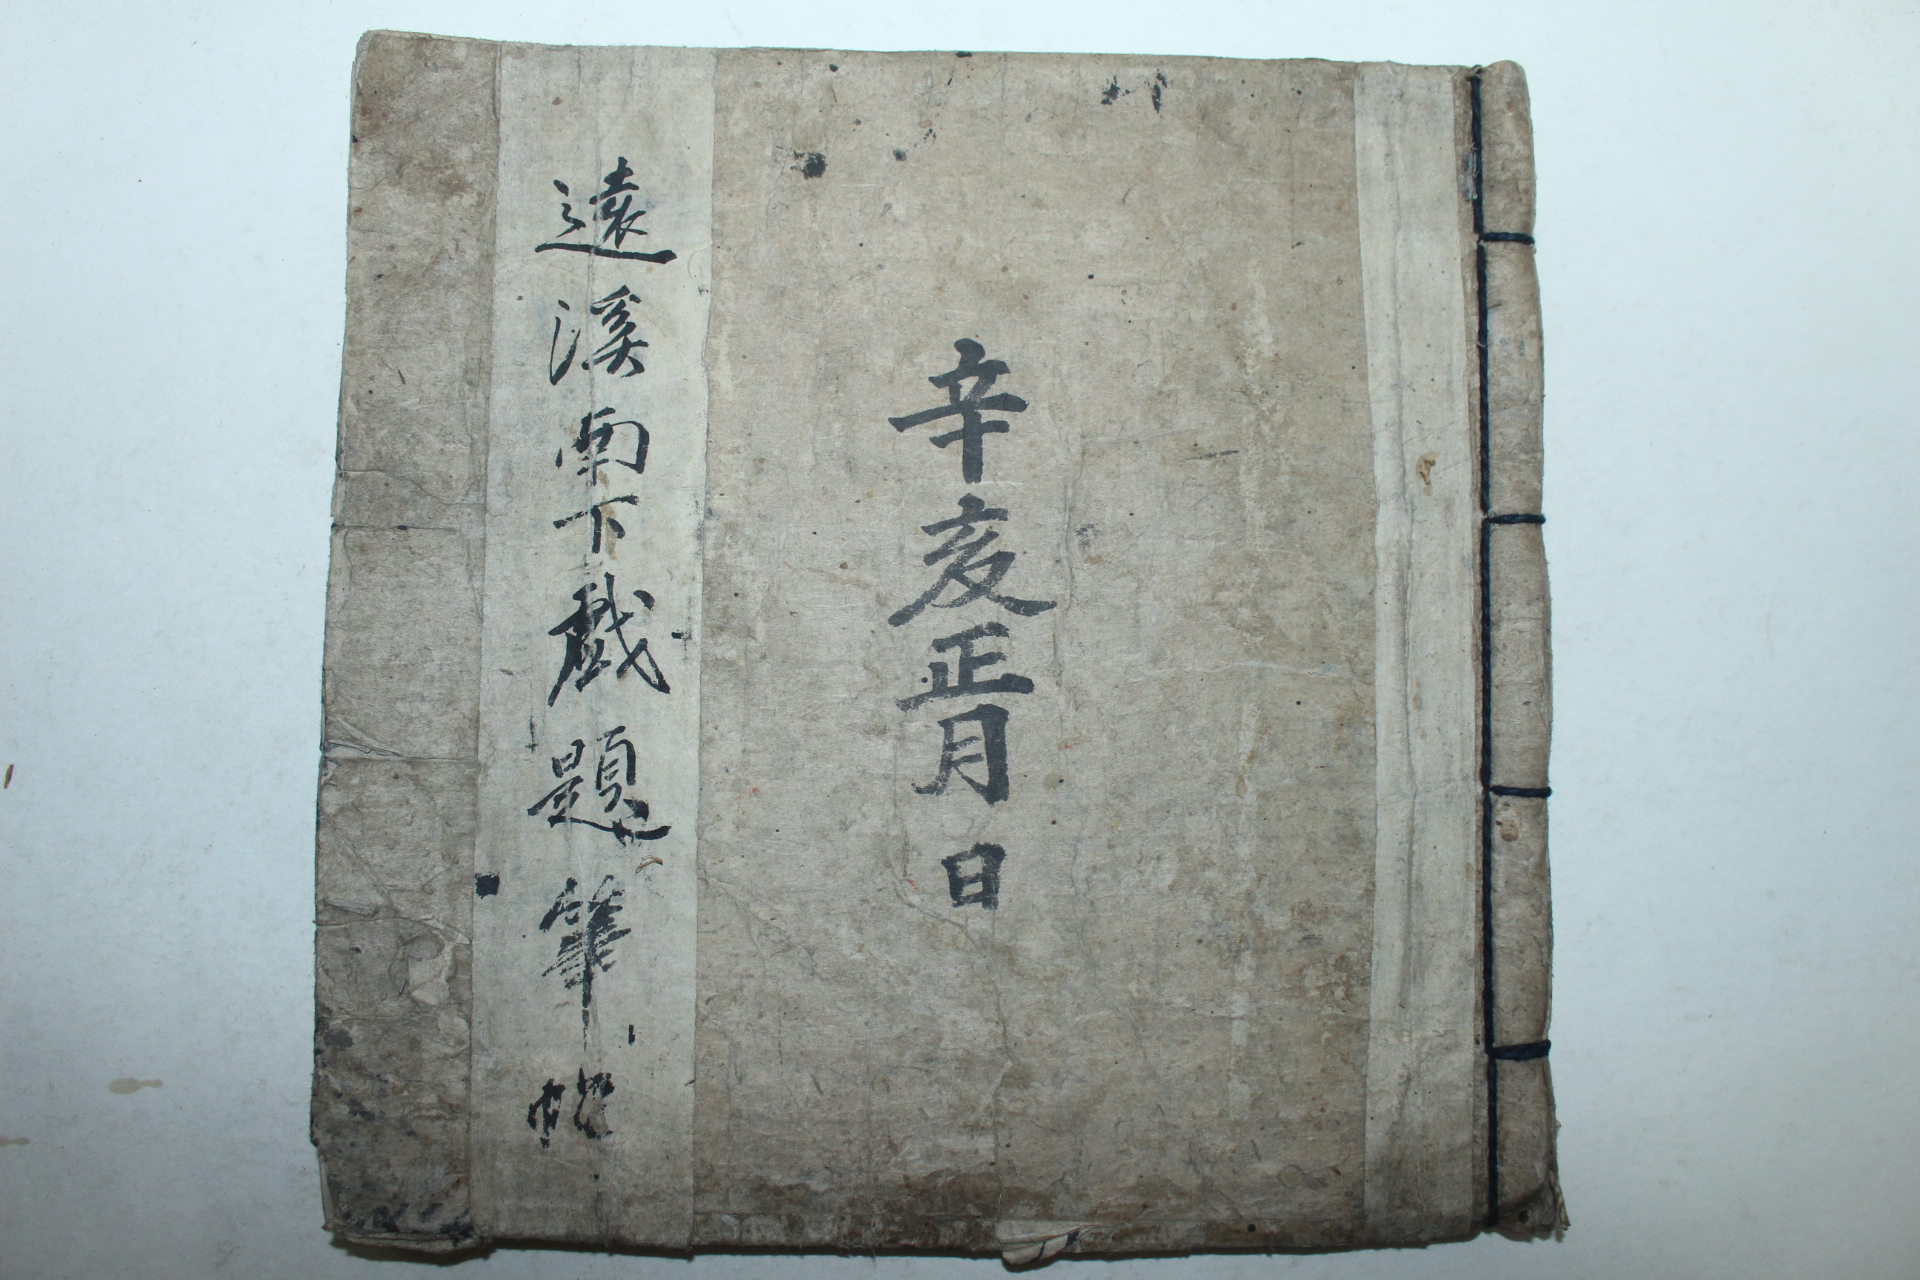 辛亥正月 日
遠溪南下戱題筆帖